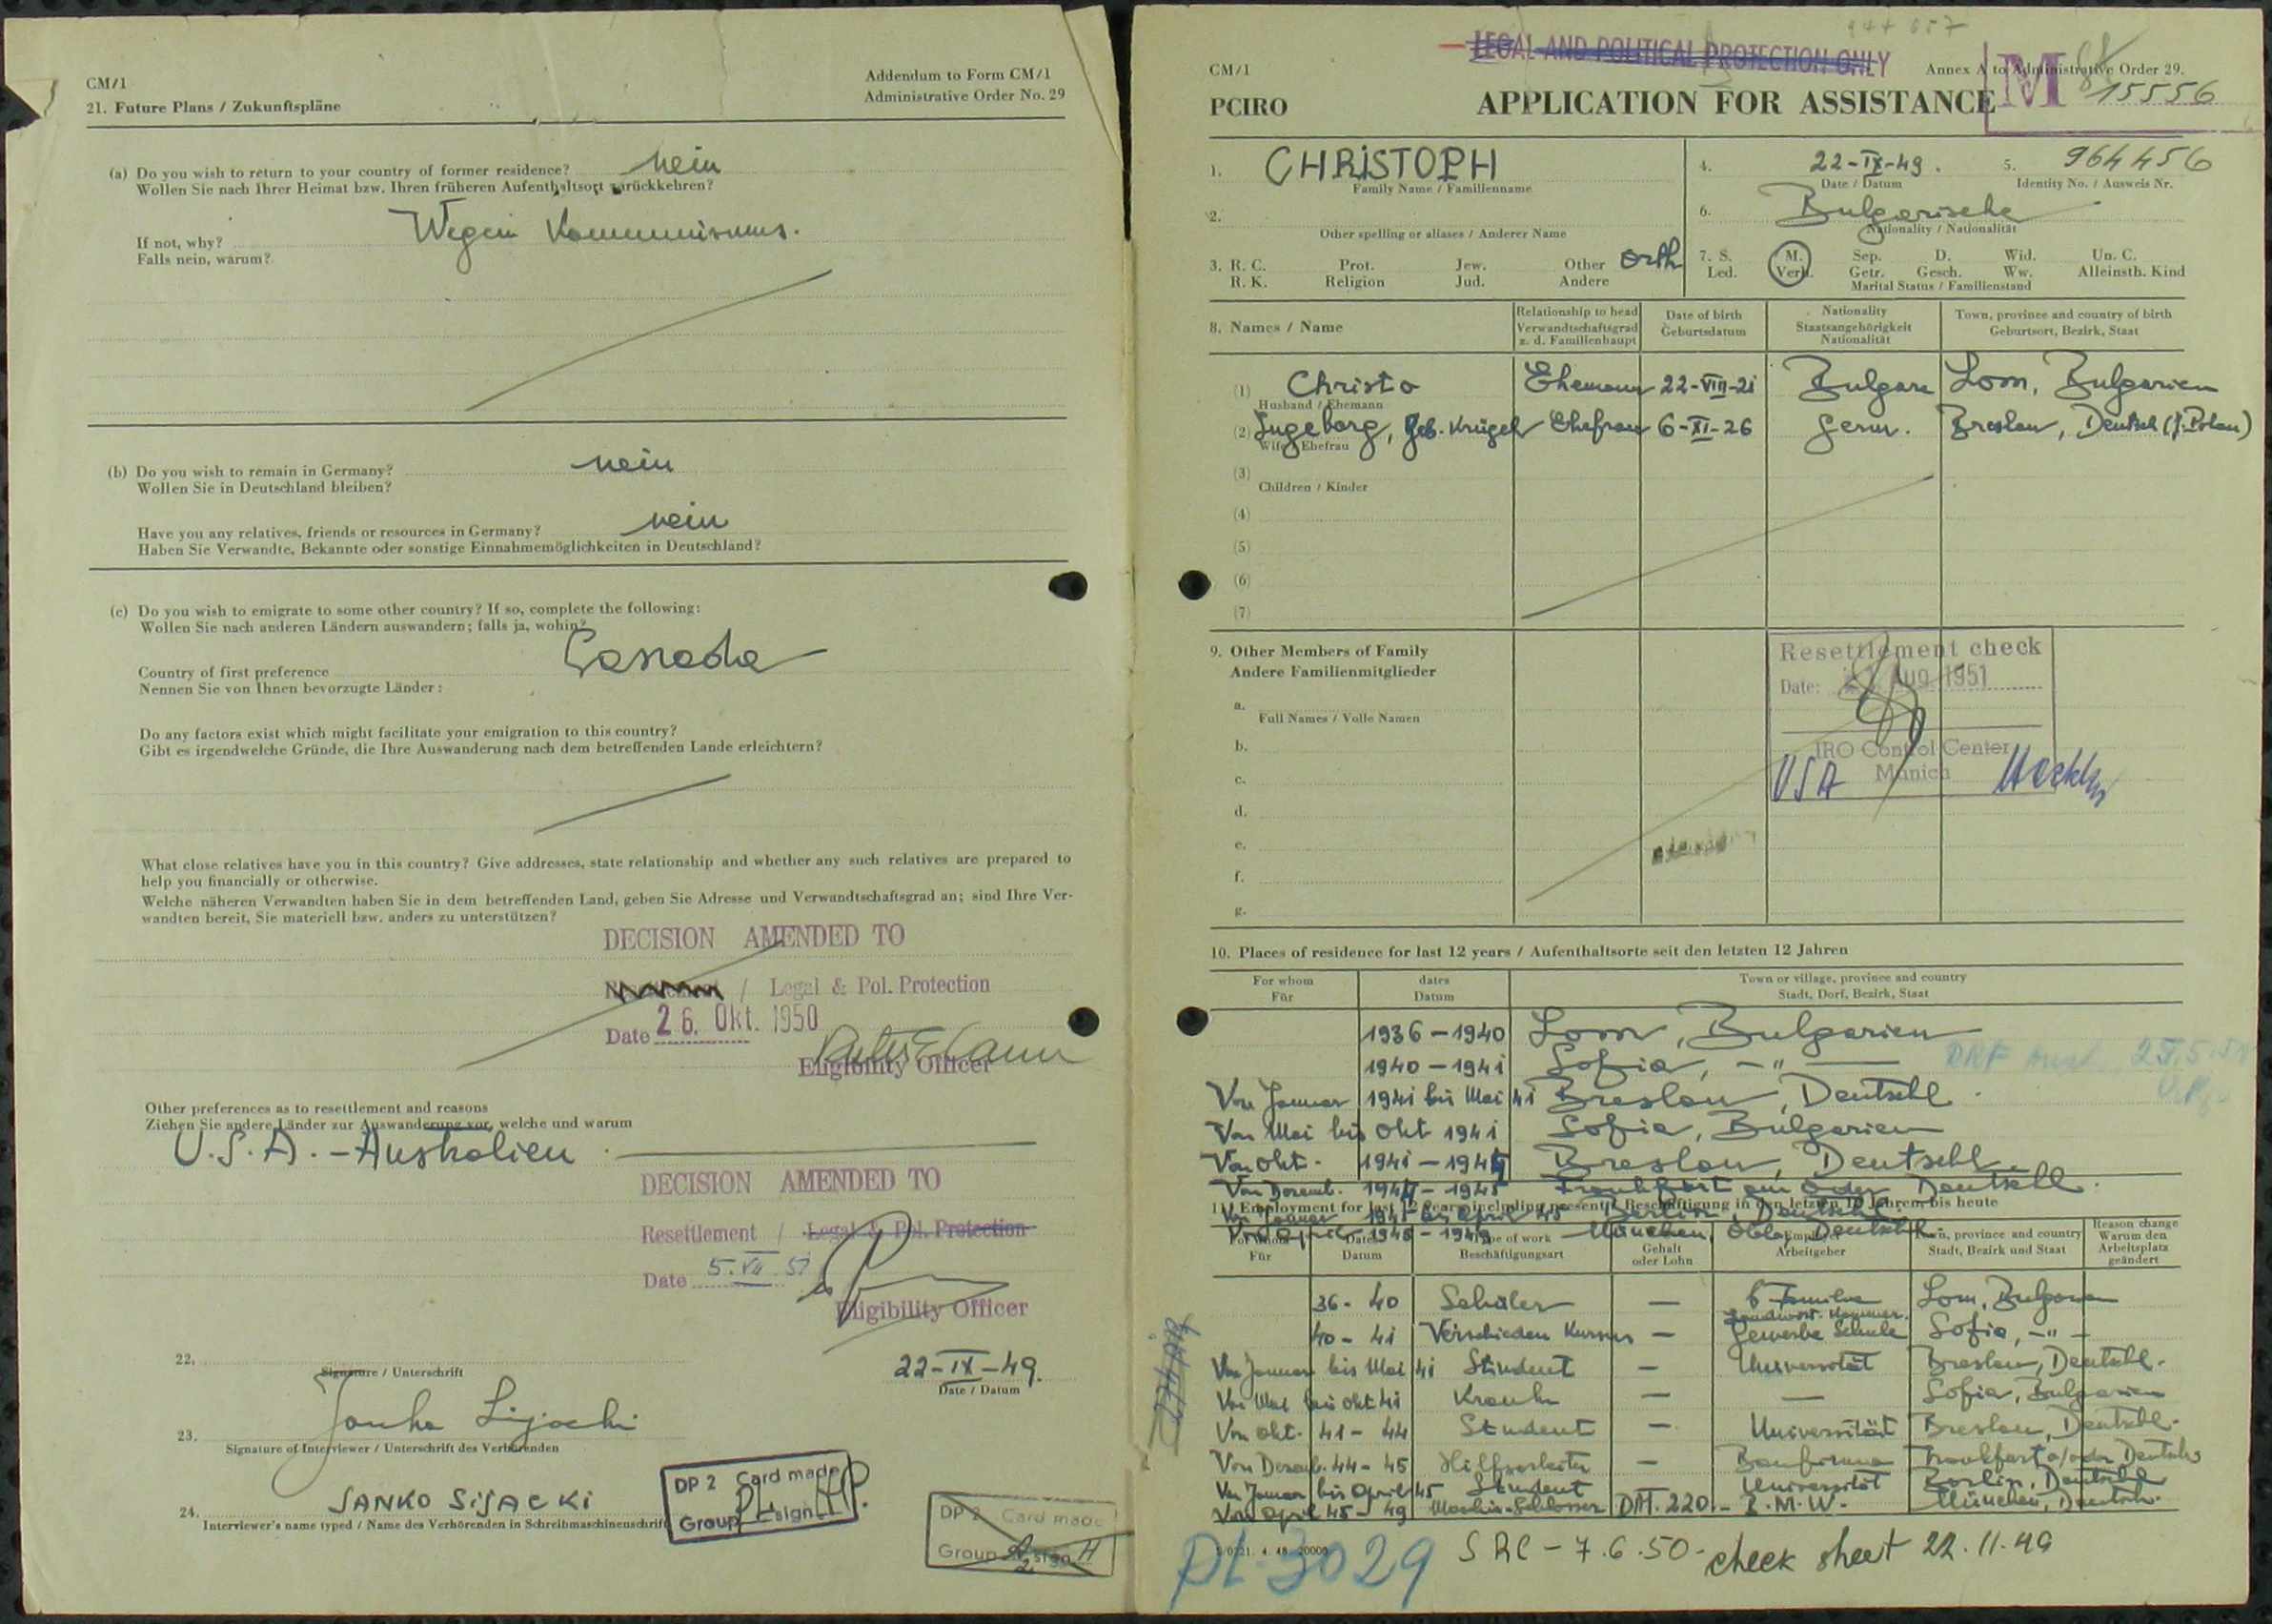 CM/1
Addendum to Form CM/1
Administrative Order No. 29
21. Future Plans / Zukunftspläne
(a) Do you wish to return to your country of former residence? nein
Wollen Sie nach Ihrer Heimat bzw. Ihren früheren Aufenthaltsort zurückkehren?
Wegen Kommunismus.
If not, why?
Falls nein, warum?
(b) Do you wish to remain in Germany? nein
Wollen Sie in Deutschland bleiben?
Have you any relatives, friends or resources in Germany? nein
Haben Sie Verwandte, Bekannte oder sonstige Einnahmemöglichkeiten in Deutschland?
(c) Do you wish to emigrate to some other country? If so, complete the following:
Wollen Sie nach anderen Ländern auswandern; falls ja, wohin?
Country of first preference Canada
Nennen Sie von Ihnen bevorzugte Länder:
Do any factors exist which might facilitate your emigration to this country?
Gibt es irgendwelche Gründe, die Ihre Auswanderung nach dem betreffenden Lande erleichtern?
What close relatives have you in this country? Give addresses, state relationship and whether any such relatives are prepared to
help you financially or otherwise.
Welche näheren Verwandten haben Sie in dem betreffenden Land, geben Sie Adresse und Verwandtschaftsgrad an; sind Ihre Ver-
wandten bereit, Sie materiell bzw. anders zu unterstützen?
DECISION AMENDED TO
Resettlement / Legal & Pol. Protection
Date 26. Okt. 1950
Eligibility Officer
Other preferences as to resettlement and reasons
Ziehen Sie andere Länder zur Auswanderung vor, welche und warum
U.S.A. - Australien
DECISION AMENDED TO
Resettlement / Legal & Pol. Protection
Date 5. VII 51
Eligibility Officer
22.
Signature / Unterschrift
22-IX-49.
Date / Datum
Janko Sijacki
23.
Signature of Interviewer / Unterschrift des Verhörenden
JANKO SIJACKI
24.
Interviewer's name typed / Name des Verhörenden in Schreibmaschinenschrift
DP 2 Card made
Group sign
DP 2 Card made
Group sign
LEGAL AND POLITICAL PROTECTION ONLY
CM/1
Annex A to Administrative Order 29.
M 15556
PCIRO
APPLICATION FOR ASSISTANCE
1. CHRISTOPH
Family Name / Familienname
4. 22-IX-49.
Date / Datum
5. 964456
Identity No. / Ausweis Nr.
2.
Other spelling or aliases / Anderer Name
6. Bulgarische
Nationality / Nationalität
3. R. C. Prot. Jew. Other orth
R. K. Religion Jud. Andere
7. S. M. Sep. D. Wid. Un. C.
Led. Verh. Getr. Gesch. Ww. Alleinsth. Kind
Marital Status / Familienstand
8. Names / Name
Relationship to head
Verwandtschaftsgrad
z. d. Familienhaupt
Date of birth
Geburtsdatum
Nationality
Staatsangehörigkeit
Nationalität
Town, province and country of birth
Geburtsort, Bezirk, Staat
(1) Christo Ehemann 22-VIII-21 Bulgare Lom, Bulgarien
Husband / Ehemann
(2) Ingeborg, geb. Krügel Ehefrau 6-XI-26 Germ. Breslau, Deutsch (j. Polen)
Wife / Ehefrau
(3)
Children / Kinder
(4)
(5)
(6)
(7)
9. Other Members of Family
Andere Familienmitglieder
a.
Full Names / Volle Namen
b.
c.
d.
e.
f.
g.
Resettlement check
Date: Aug 1951
IRO Control Center
Munich
USA
10. Places of residence for last 12 years / Aufenthaltsorte seit den letzten 12 Jahren
For whom
Für
dates
Datum
Town or village, province and country
Stadt, Dorf, Bezirk, Staat
1936 - 1940 Lom, Bulgarien
1940 - 1941 Sofia, -"-
Von Januar 1941 bis Mai 41 Breslau, Deutschl.
Von Mai bis Okt 1941 Sofia, Bulgarien
Von Okt. 1941 - 1944 Breslau, Deutschl.
Von Dezemb. 1944 - 1945 Frankfurt am Oder Deutschl.
Von Januar 1945 bis April 45 Berlin, Deutschl.
Von April 1945 - 1949 München, Obb., Deutschl.
11. Employment for last 12 years including present / Beschäftigung in den letzten 12 Jahren bis heute
For whom
Für
Dates
Datum
Type of work
Beschäftigungsart
Gehalt
oder Lohn
Employer
Arbeitgeber
Town, province and country
Stadt, Bezirk und Staat
Reason change
Warum den
Arbeitsplatz
geändert
36 - 40 Schüler — b. Familie Lom, Bulgarien
40 - 41 Verschieden Kursus — Gewerbe Schule Sofia, -"-
Von Januar bis Mai 41 Student — Universität Breslau, Deutschl.
Von Mai bis Okt 41 Krank — — Sofia, Bulgarien
Von Okt. 41 - 44 Student — Universität Breslau, Deutschl.
Von Dezemb. 44 - 45 Hilfsarbeiter — Baufirma Frankfurt a/oder Deutschl
Von Januar bis April 45 Student Universität Berlin, Deutschl
Von April 45 - 49 Maschin-Schlosser DM. 220.- B.M.W. München, Deutsch.
PL 3029
SRC - 7.6.50 - check sheet 22.11.49